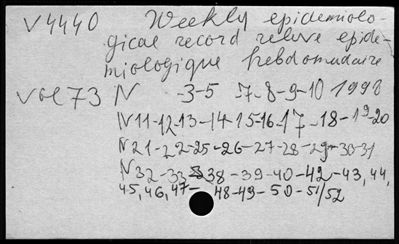 V4440 Weekly epidemiolo-
gical record releve epide-
miologique hebdomadaire
vol 73 N -3-5 -7-8-9-10 1998
N 11-12-13-14-15-16-17-18-19-20
N 21-22-25-26-27-28-29-30-31
N 32-33 38-39-40-42-43, 44,
45, 46, 47- 48-49-50-51/52